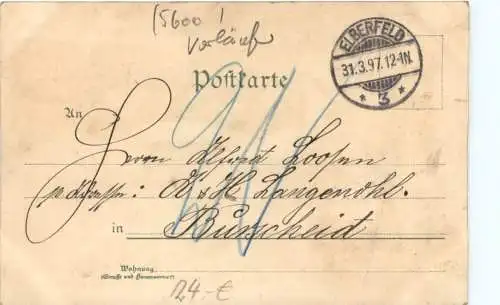 (5600!
Vorläufer
ELBERFELD
31.3.97.12-1N.
* 3 *
Postkarte
An
Herrn Alfred Loosen
p Adresse: A. & H. Langenohl.
in Burscheid
Wohnung
(Straße und Hausnummer)
24.-€